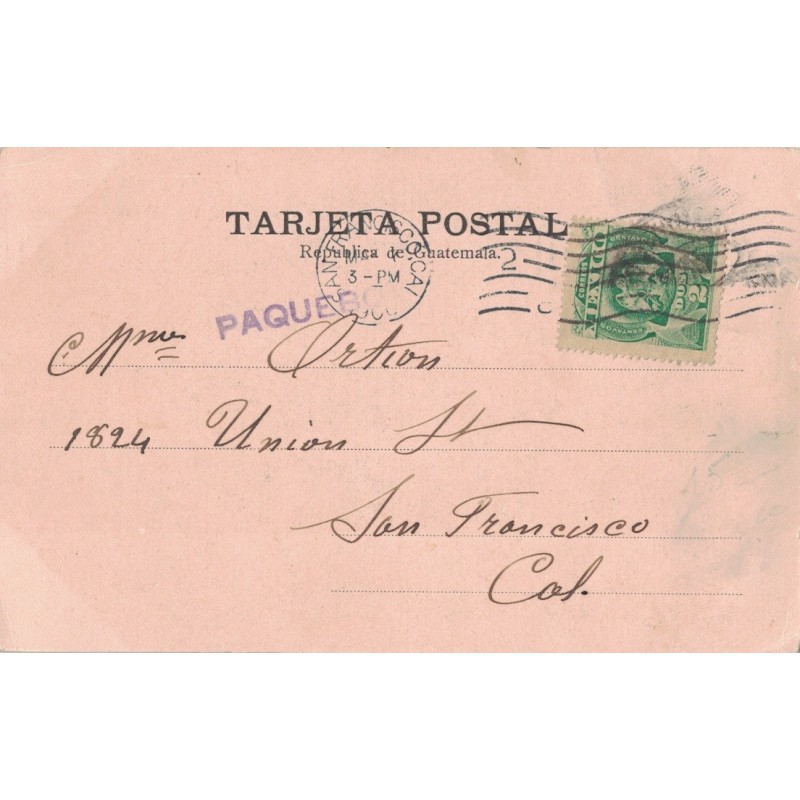 TARJETA POSTAL
República de Guatemala.
SAN FRANCISCO, CAL
3-PM
PAQUEBO
2
CORREOS
MEXICO
CENTAVOS
DOS
2
CENTAVOS
Mme Ortion
1824 Union St
San Francisco
Cal.